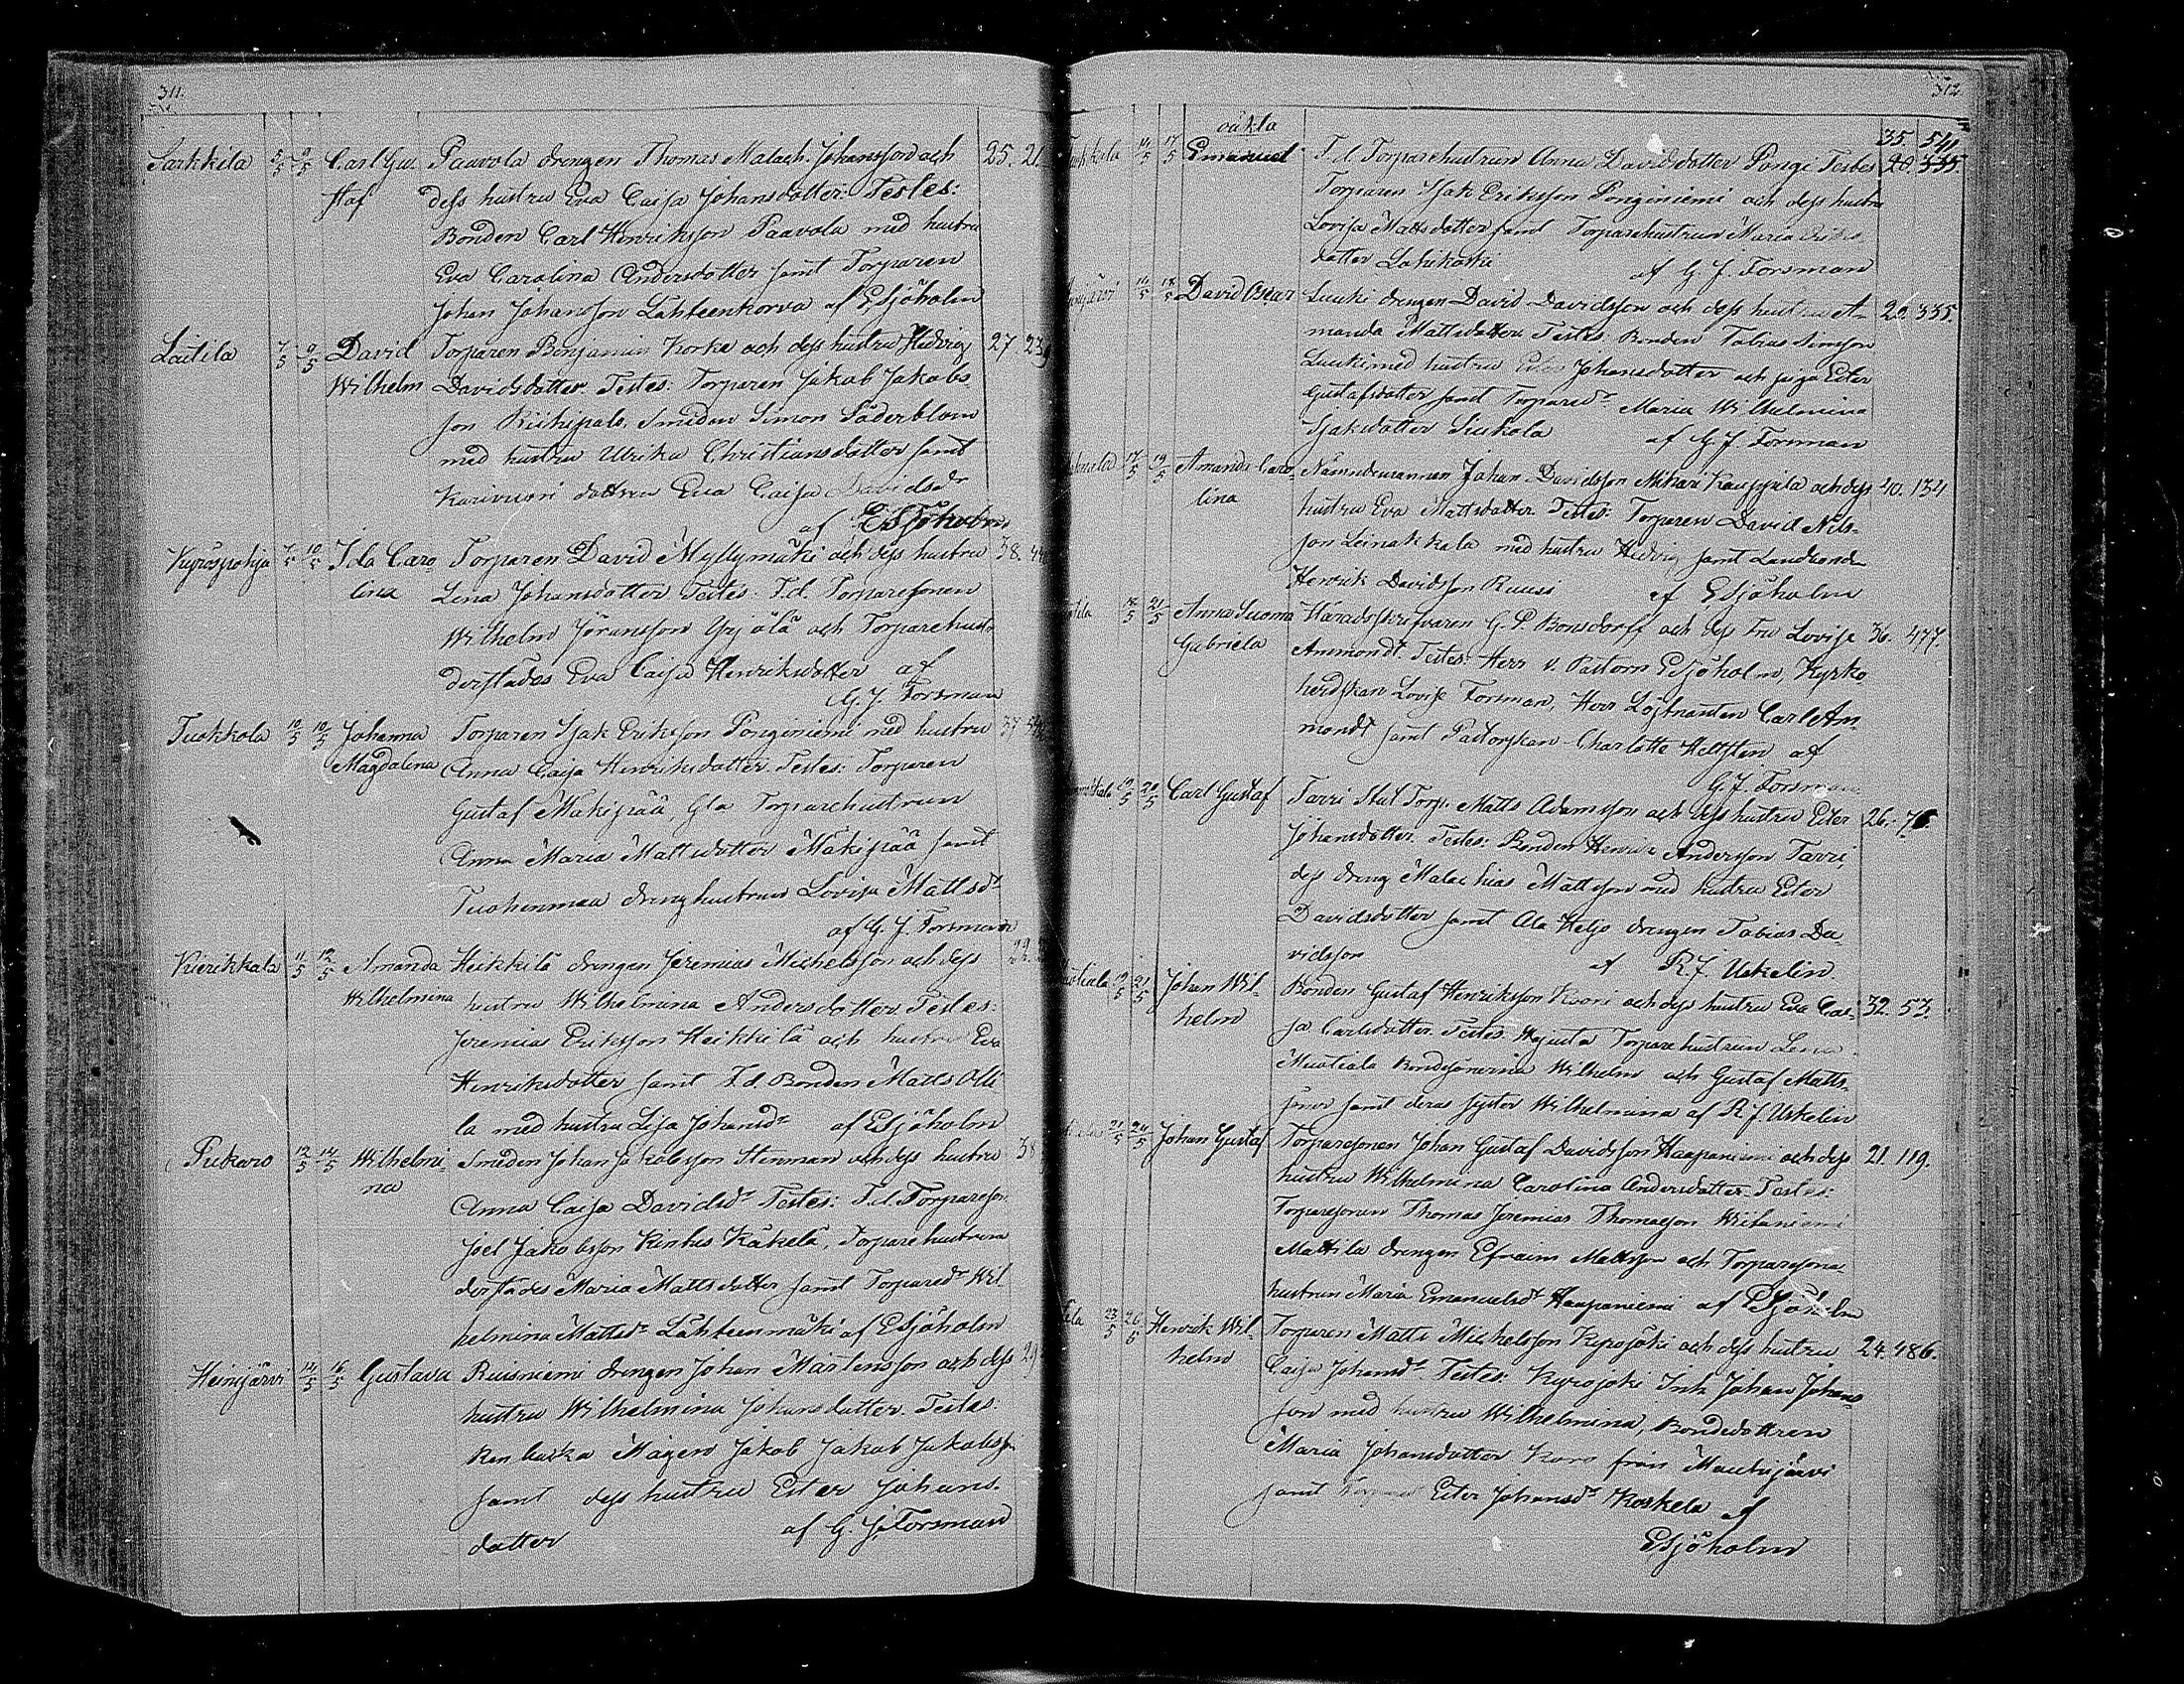 311.
Sarkkila 5/5 9/5 Carl Gu- Paavola drengen Thomas Malach. Johansson och 25. 21
staf dess hustru Eva Caisa Johansdotter. Testes:
Bonden Carl Henriksson Paavola med hustru
Eva Carolina Andersdotter samt Torparen
Johan Johansson Lähteenkorva af ESjöholm
Laitila 7/5 9/5 David Torparen Benjamin Korke och dess hustru Hedvig 27. 23
Wilhelm Davidsdotter. Testes: Torparen Jakob Jakobs
son Smeden Simon Söderblom
med hustru Ulrika Christiansdotter samt
Karivuori dottren Eva Caisa Davidsdr
af ESjöholm
Kyröspohja 7/5 10/5 Ida Caro Torparen David Myllymäki och dess hustru 38.
lina Lena Johansdotter Testes. T.d. Torparesonen
Wilhelm Jöransson Yrjölä och Torparehustr
derstädes Eva Caisa Henriksdotter af
G. J. Forsman
Tuokkola 10/5 10/5 Johanna Torparen Isak Eriksson Ponginiemi med hustru 37
Magdalena Anna Caisa Henriksdotter. Testes: Torparen
Gustaf Mäkipää, Gla Torparehustrun
Anna Maria Mattsdotter Mäkipää samt
Tuohenmaa dreng hustrun Lovisa Mattsdr
af G. J. Forsman
Kierikkala 11/5 12/5 Amanda Heikkilä drengen Jeremias Michelsson och dess 29.
Wilhelmina hustru Wilhelmina Andersdotter. Testes:
Jeremias Eriksson Heikkilä och hustru Eva
Henriksdotter samt T.d. Bonden Matts Olli
la med hustru Lisa Johansdr af ESjöholm
Pukara 12/5 14/5 Wilhelmi Smeden Johan Jakobsson Stenman och dess hustru 38
na Anna Caisa Davidsdr Testes: T.d. Torpareson
Joel Jakobsson Kintus Käkelä, Torparehustrun
derstädes Maria Mattsdotter samt Torparedr Wil
helmina Mattsdr Lähteenmäki af ESjöholm
Heinijärvi 14/5 16/5 Gustava Ruisniemi drengen Johan Mårtensson och dess 29
hustru Wilhelmina Johansdotter. Testes:
Mågen Jakob Jakob Jakobsson
samt dess hustru Ester Johans-
dotter af G. J. Forsman
312
oäkta 35. 541
17/5 Emanuel T.d. Torparehustrun Anna Davidsdotter Pongi Testes 20. 335.
Torparen Isak Eriksson Ponginiemi och dess hustru
Lovisa Mattsdotter samt Torparehustrun Maria Eriks
dotter Lahikoski af G J. Forsman
16/5 18/5 David Oscar Luuki drengen David Davidsson och dess hustru A- 20. 335.
manda Mattsdotter. Testes Bonden Tobias Simson
Luuki med hustru Johansdotter och piga Ester
Gustafsdotter samt Torparedr Maria Wilhelmina
Isaksdotter Siukola af G. J. Forsman
17/5 19/5 Amanda Caro- Nämndemannen Johan Davidsson Mikari Kauppila och dess 40. 134
lina hustru Eva Mattsdotter. Testes: Torparen David Nils-
son Leinakkala med hustru Hedvig samt
Henrik Davidsson Ruusi af ESjöholm
18/5 21/5 Anna Suoma Häradsskrifvaren G. P. Bonsdorff och dess Fru Lovise 36. 477.
Gabriela Ammondt. Testes: Herr V. Pastorn ESjöholm, Kyrko
herdskan Lovise Forsman, Herr Löjtnanten Carl Am-
mondt samt Pastorskan Charlotte Hellsten af
G. J. Forsman
19/5 20/5 Carl Gustaf Tarri Stat Torp. Matts Adamsson och dess hustru Ester 26. 76.
Johansdotter. Testes: Bonden Henrik Andersson Tarri,
dess dreng Malachias Mattsson med hustru Ester
Davidsdotter samt Ala Heljo drengen Tobias Da-
vidsson af R. J. Uskelin.
19/5 21/5 Johan Wil- Bonden Gustaf Henriksson Kuori och dess hustru Eva Cai- 32. 53
helm sa Carlsdotter. Testes: Torparehustrun Lena
Muotiala Bondsönerna Wilhelm och Gustaf Matts-
söner samt deras syster Wilhelmina af R. J. Uskelin
21/5 24/5 Johan Gustaf Torparesonen Johan Gustaf Davidsson Haapaniemi och dess 21. 119.
hustru Wilhelmina Carolina Andersdotter. Testes:
Torparesonen Thomas Jeremias Thomasson Wiitaniemi
Mattila drengen Efraim Mattsson och Torparesona
hustrun Maria Emanuelsdr Haapaniemi af ESjöholm
23/5 26/5 Henrik Wil- Torparen Matts Michelsson Kyrosjöki och dess hustru 24. 486.
helm Caisa Johansdr Testes: Kyrosjoki Inh Johan Johans
son med hustru Wilhelmina, Bondedottren
Maria Johansdotter Koro från Mauhijärvi
samt Ester Johansdr Koskela af
ESjöholm